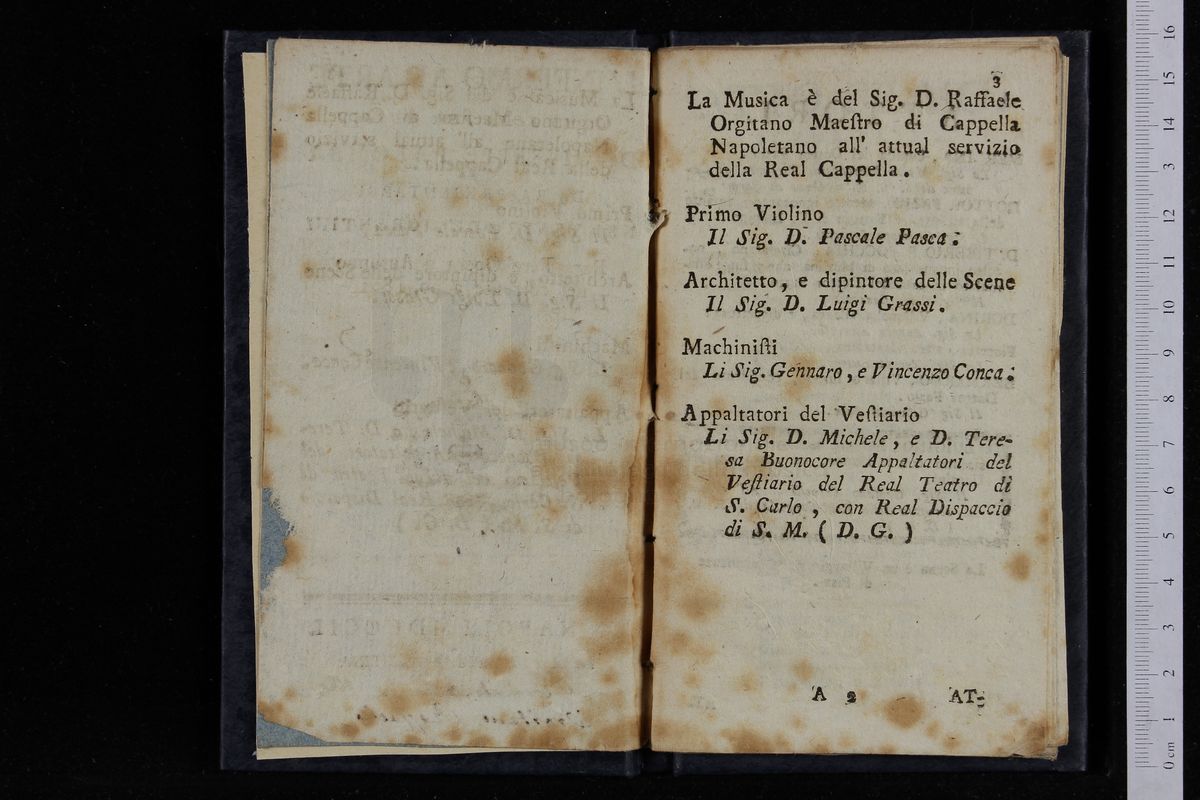 3
La Musica è del Sig. D. Raffaele
Orgitano Maeſtro di Cappella
Napoletano all' attual servizio
della Real Cappella.
Primo Violino
Il Sig. D. Pascale Pasca.
Architetto, e dipintore delle Scene
Il Sig. D. Luigi Grassi.
Machiniſti
Li Sig. Gennaro, e Vincenzo Conca.
Appaltatori del Veſtiario
Li Sig. D. Michele, e D. Tere-
sa Buonocore Appaltatori del
Veſtiario del Real Teatro di
S. Carlo, con Real Dispaccio
di S. M. ( D. G. )
A 2 AT-
0 cm 1 2 3 4 5 6 7 8 9 10 11 12 13 14 15 16